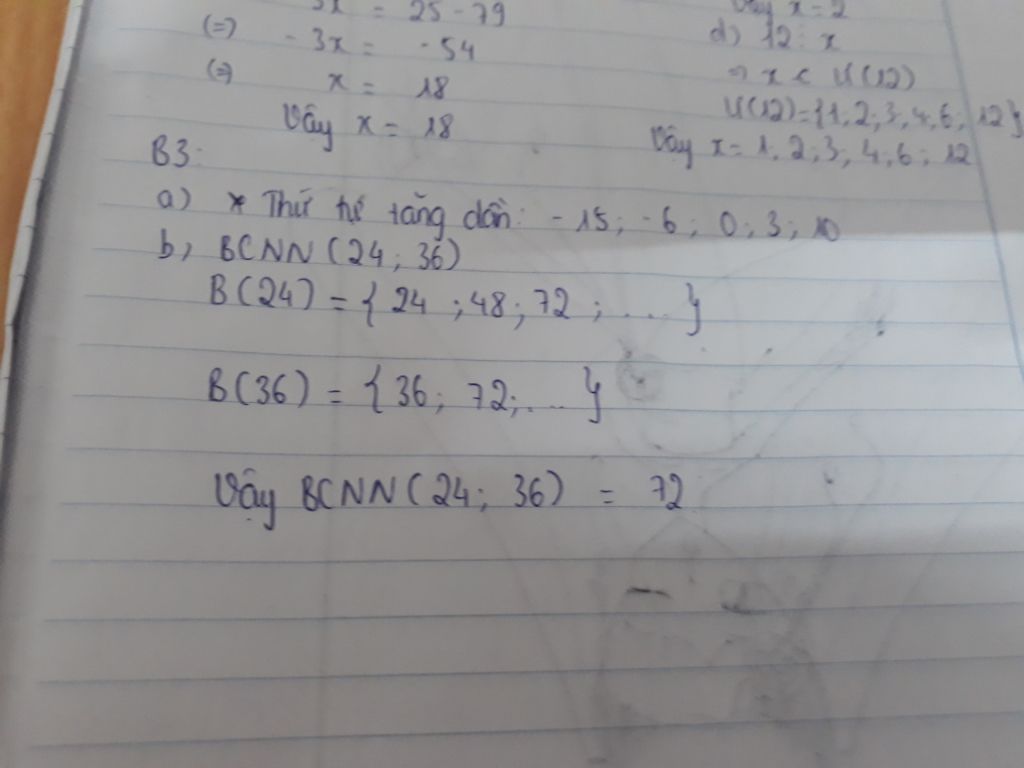 3x = 25 - 79
(=) - 3x = - 54
(=) x = 18
Vậy x = 18
Vậy x = 2
d) 12 : x
=> x ∈ Ư(12)
Ư(12) = {1, 2; 3, 4, 6, 12}
Vậy x = 1, 2; 3; 4; 6; 12
B3:
a) * Thứ tự tăng dần: - 15; - 6; 0; 3; 10
b, BCNN (24; 36)
B(24) = { 24 ; 48; 72 ; .... }
B(36) = { 36; 72; .... }
Vậy BCNN (24; 36) = 72